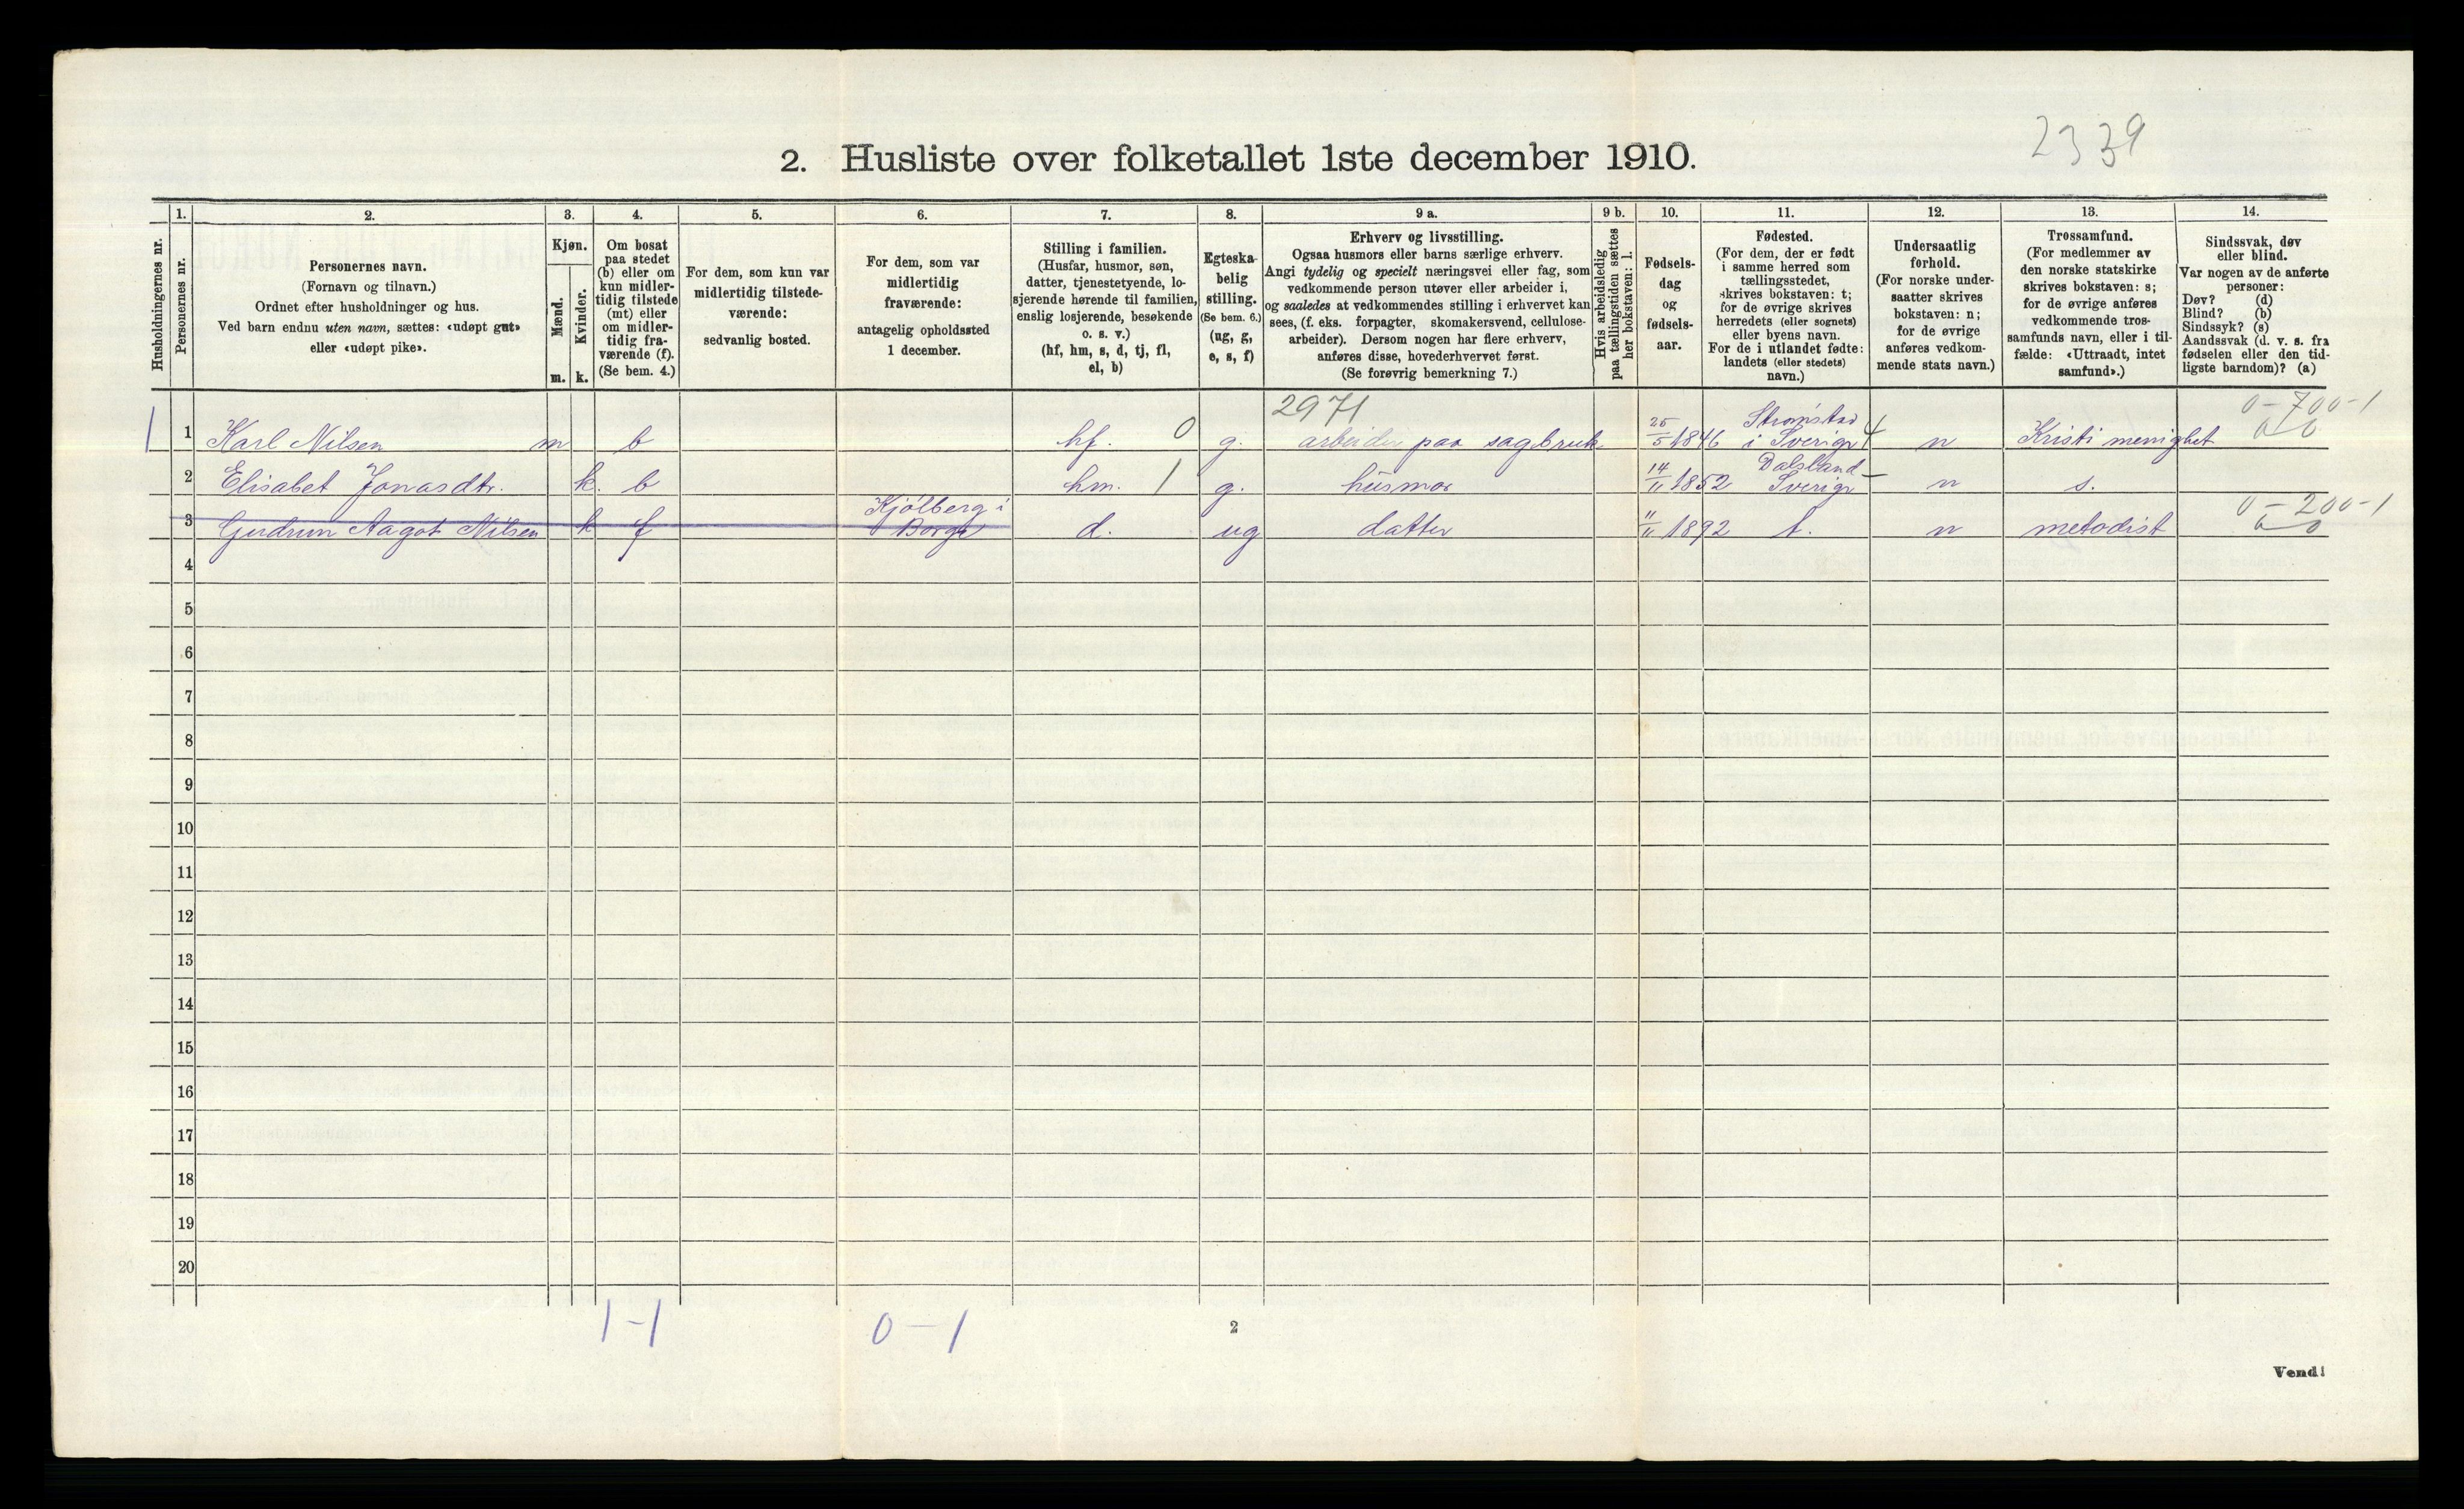 2339
2. Husliste over folketallet 1ste december 1910.
Husholdningernes nr.
1.
Personernes nr.
2.
Personernes navn.
(Fornavn og tilnavn.)
Ordnet efter husholdninger og hus.
Ved barn endnu uten navn, sættes: «udøpt gut»
eller «udøpt pike».
3.
Kjøn.
Mænd.
Kvinder.
m. k.
4.
Om bosat
paa stedet
(b) eller om
kun midler-
tidig tilstede
(mt) eller
om midler-
tidig fra-
værende (f).
(Se bem. 4.)
5.
For dem, som kun var
midlertidig tilstede-
værende:
sedvanlig bosted.
6.
For dem, som var
midlertidig
fraværende:
antagelig opholdssted
1 december.
7.
Stilling i familien.
(Husfar, husmor, søn,
datter, tjenestetyende, lo-
sjerende hørende til familien,
enslig losjerende, besøkende
o. s. v.)
(hf, hm, s, d, tj, fl,
el, b)
8.
Egteska-
belig
stilling.
(Se bem. 6.)
(ug, g,
e, s, f)
9 a.
Erhverv og livsstilling.
Ogsaa husmors eller barns særlige erhverv.
Angi tydelig og specielt næringsvei eller fag, som
vedkommende person utøver eller arbeider i,
og saaledes at vedkommendes stilling i erhvervet kan
sees, (f. eks. forpagter, skomakersvend, cellulose-
arbeider). Dersom nogen har flere erhverv,
anføres disse, hovederhvervet først.
(Se forøvrig bemerkning 7.)
9 b.
Hvis arbeidsledig
paa tællingstiden sættes
her bokstaven: l.
10.
Fødsels-
dag
og
fødsels-
aar.
11.
Fødested.
(For dem, der er født
i samme herred som
tællingsstedet,
skrives bokstaven: t;
for de øvrige skrives
herredets (eller sognets)
eller byens navn.
For de i utlandet fødte:
landets (eller stedets)
navn.)
12.
Undersaatlig
forhold.
(For norske under-
saatter skrives
bokstaven: n;
for de øvrige
anføres vedkom-
mende stats navn.)
13.
Trossamfund.
(For medlemmer av
den norske statskirke
skrives bokstaven: s;
for de øvrige anføres
vedkommende tros-
samfunds navn, eller i til-
fælde: «Uttraadt, intet
samfund».)
14.
Sindssvak, døv
eller blind.
Var nogen av de anførte
personer:
Døv? (d)
Blind? (b)
Sindssyk? (s)
Aandssvak (d. v. s. fra
fødselen eller den tid-
ligste barndom)? (a)
2971 Strømstad 0-700-1
1 1 Karl Nilsen m b hf. 0 g. arbeider paa sagbruk 25/5 1846 i Sverige 4 n Kristi menighet 0 0
Dalsland
2 Elisabet Jonasdtr. k. b hm. 1 g. husmor 14/11 1852 Sverige - n s.
Kjölberg i 0-200-1
3 Gudrun Aagot Nilsen k f Borge d. ug datter 11/11 1892 t. n metodist 0 0
4
5
6
7
8
9
10
11
12
13
14
15
16
17
18
19
20
1-1 0-1
2
Vend!